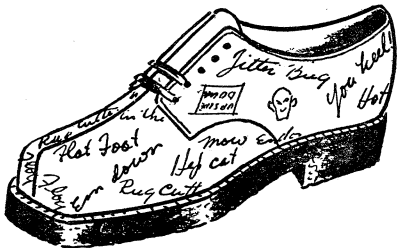 Jitter Bug
You heel!
Hot
UPSIDE
DOWN
in the
Hot Foot
mow
Em down
Hep cat
Rug Cutt